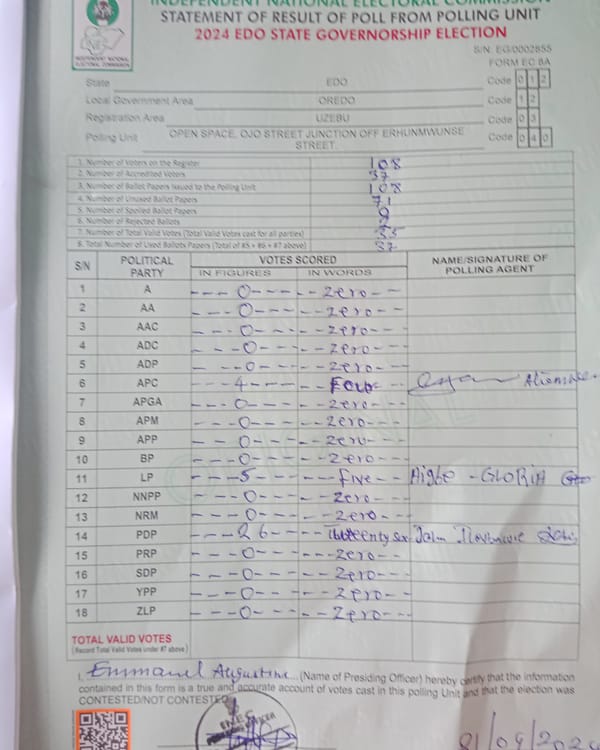 INDEPENDENT NATIONAL ELECTORAL COMMISSION
STATEMENT OF RESULT OF POLL FROM POLLING UNIT
2024 EDO STATE GOVERNORSHIP ELECTION
INDEPENDENT NATIONAL ELECTORAL COMMISSION
S/N: EG/0002855
FORM EC 8A
State EDO Code 0 1 2
Local Government Area OREDO Code 1 2
Registration Area UZEBU Code 0 3
Polling Unit OPEN SPACE, OJO STREET JUNCTION OFF ERHUNMWUNSE STREET. Code 0 4 0
1. Number of Voters on the Register 108
2. Number of Accredited Voters 37
3. Number of Ballot Papers Issued to the Polling Unit 108
4. Number of Unused Ballot Papers 71
5. Number of Spoiled Ballot Papers 0
6. Number of Rejected Ballots 2
7. Number of Total Valid Votes (Total Valid Votes cast for all parties) 35
8. Total Number of Used Ballots Papers (Total of #5 + #6 + #7 above) 37
S/N POLITICAL PARTY VOTES SCORED NAME/SIGNATURE OF POLLING AGENT
IN FIGURES IN WORDS
1 A ---0--- --Zero--
2 AA ---0--- --Zero--
3 AAC ---0--- --Zero--
4 ADC ---0--- --Zero--
5 ADP ---0--- --Zero--
6 APC ---4--- --Four---
7 APGA ---0--- --Zero--
8 APM ---0--- --Zero--
9 APP ---0--- --Zero--
10 BP ---0--- --Zero--
11 LP ---5--- ---Five-- Aigbe - GLORIA
12 NNPP ---0--- --Zero--
13 NRM ---0--- --Zero--
14 PDP ---26--- Twenty Six John
15 PRP ---0--- ---Zero--
16 SDP ---0--- --Zero--
17 YPP ---0--- --Zero---
18 ZLP ---0--- --Zero---
TOTAL VALID VOTES
(Record Total Valid Votes under #7 above)
I, Emmanuel Augustine (Name of Presiding Officer) hereby certify that the information
contained in this form is a true and accurate account of votes cast in this polling Unit and that the election was
CONTESTED/NOT CONTESTED